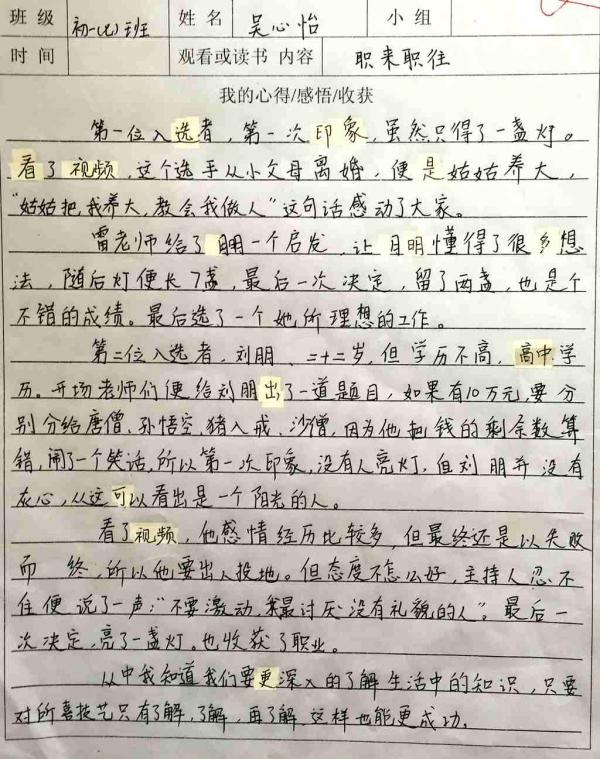 班级 初一(七)班 姓名 吴心怡 小组
时间 观看或读书内容 职来职往
我的心得/感悟/收获
第一位入选者，第一次印象，虽然只得了一盏灯。
看了视频，这个选手从小父母离婚，便是姑姑养大，
“姑姑把我养大，教会我做人”这句话感动了大家。
雷老师给了一个启发，让月明懂得了很多想
法，随后灯便长7盏，最后一次决定，留了两盏，也是个
不错的成绩。最后选了一个她所理想的工作。
第二位入选者，刘朋、二十二岁，但学历不高，高中学
历。开场老师们便给刘朋出了一道题目，如果有10万元，要分
别分给唐僧、孙悟空，猪入戒，沙僧，因为他把钱的剩余数算
错，闹了一个笑话，所以第一次印象，没有人亮灯，但刘朋并没有
灰心，从这可以看出是一个阳光的人。
看了视频，他感情经历比较多，但最终还是以失败
而终，所以他要出人投地。但态度不怎么好，主持人忍不
住便说了一声：“不要激动，我最讨厌没有礼貌的人”。最后一
次决定，亮了一盏灯。也收获了职业。
从中我知道我们要更深入的了解生活中的知识，只要
对所喜技艺只有了解，了解，再了解 这样也能更成功。